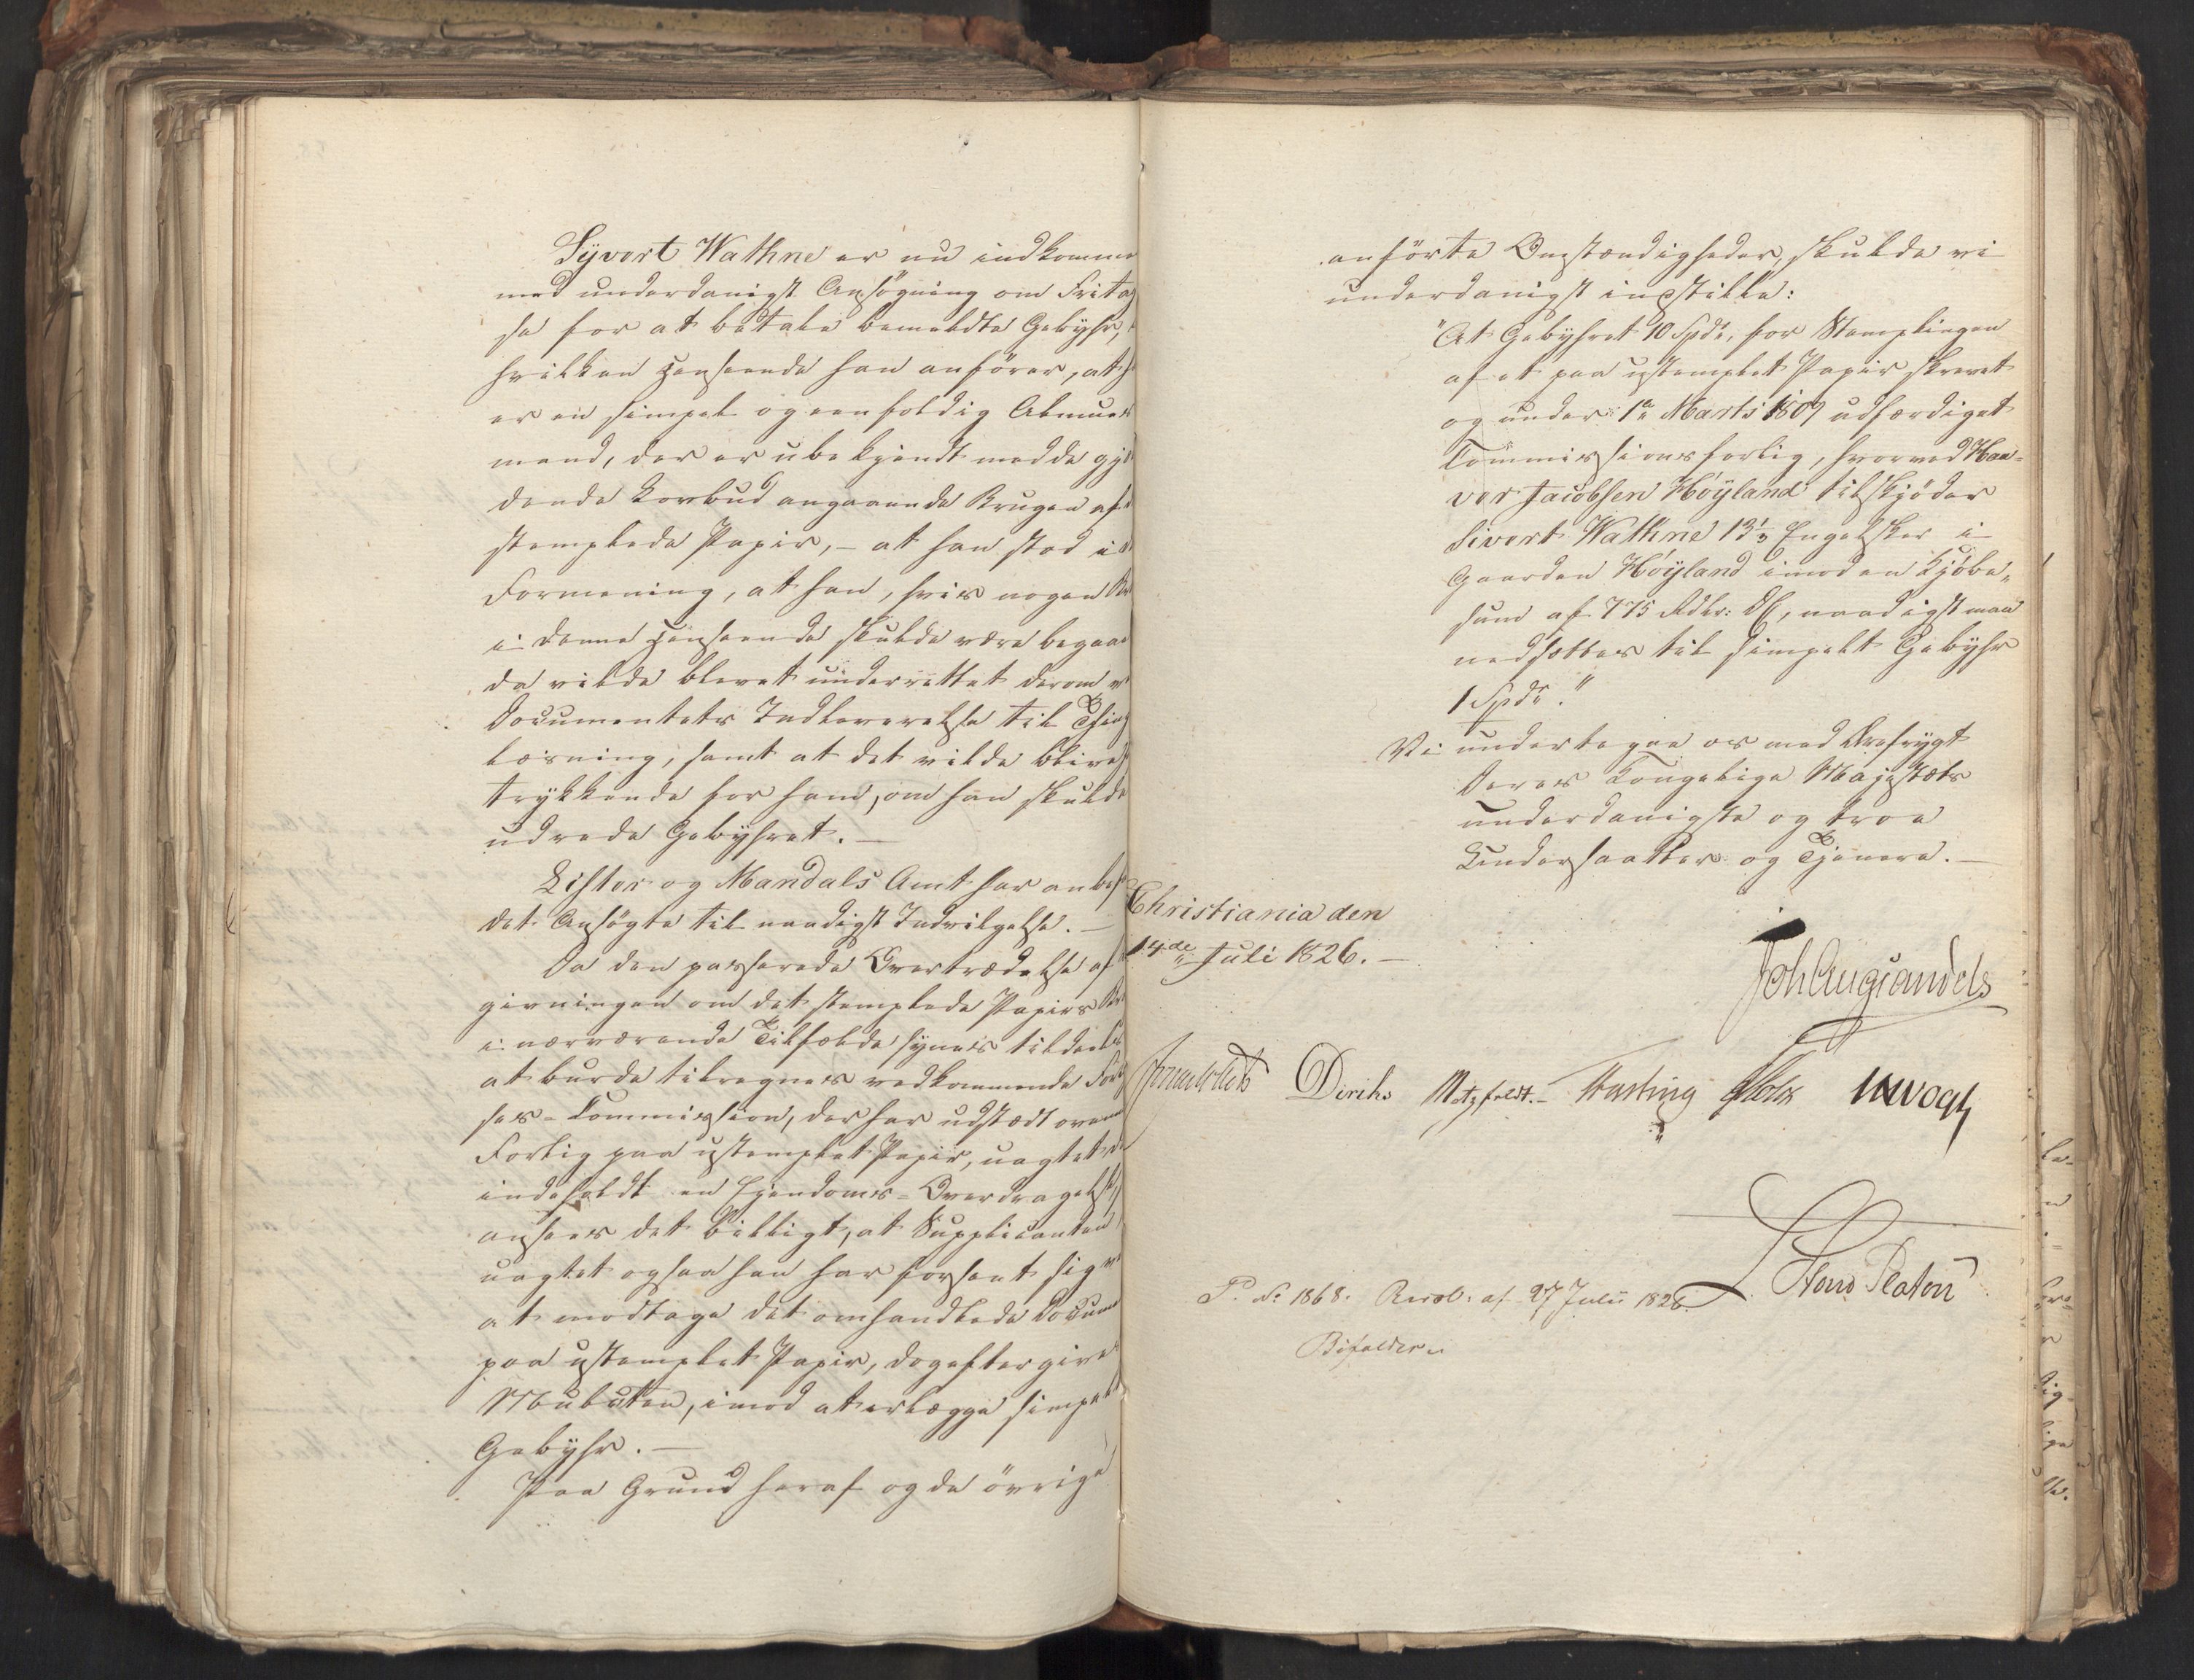 Syvert Wathne er nu indkommen
med underdanigst Ansøgning om Fritag
se for at betale bemeldte Gebyhr,
hvilken Henseende han anfører, at h
er en simpel og eenfoldig Almues
mand, der er ubekjendt med de gjæl
dende Lovbud angaaende Brugen af
stemplede Papir, – at han stod i
Formening, at han, hvis nogen
i denne Henseende skulde være begaae
da vilde blevet underrettet derom v
Documentets Indleverelse til Thing
læsning, samt at det vilde blive
trykkende for ham, om han skulde
udrede Gebyhret. –
Lister og Mandals Amt har anbef
det Ansøgte til naadigst Indvilgelse. –
Da den passerede Overtrædelse af
givningen om det stemplede Papirs Br
i nærværende Tilfælde synes tildeels
at burde tilregnes vedkommende Forli
ses-Commission, der har udstædt oven
Forlig paa ustemplet Papir, uagtet de
indeholdt en Ejendoms-Overdragelse,
ansees det billigt, at Supplicanten,
uagtet ogsaa han har forseet sig ve
at modtage det omhandlede Docume
paa ustemplet Papir, dog eftergives
Mulcten, imod at erlægge simpelt
Gebyhr. –
Paa Grund heraf og de øvrige
anførte Omstændigheder, skulde vi
underdanigst indstille:
"At Gebyhret 10 Spdr, for Stemplingen
af et paa ustemplet Papir skrevet
og under 1te Marts 1809 udfærdiget
Commissionsforlig, hvorved Haa-
ver Jacobsen Höyland tilskjøder
Sivert Wathne 13½ Engelsker i
Gaarden Höyland imod en Kjøbe„
sum af 775 Rdlr: DC, naadigst maa
nedsættes til simpelt Gebyhr
1 Spdr."
Vi undertegne os med Ærefrygt
Deres Kongelige Majestæts
underdanigste og troe
Undersaatter og Tjenere. –
Christiania den
14de Juli 1826. –
Joh Aug Sandels
Diriks Motzfeldt. – Fasting Holst
P. No 1868. Resol: af 27 Julii 1826.
Bifaldes.